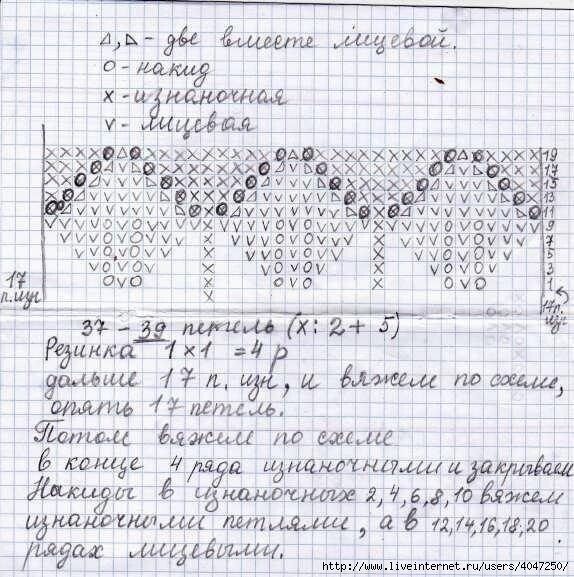 △, ◺ - две вместе лицевой.
О - накид
х - изнаночная
v - лицевая
19
17
15
13
11
9
7
5
3
1
17
п.изн
17п.
изн
37 - 39 петель (х: 2 + 5)
Резинка 1х1 = 4 р
дальше 17 п. изн, и вяжем по схеме,
опять 17 петель.
Потом вяжем по схеме
в конце 4 ряда изнаночными и закрываем
Накиды в изнаночных 2,4,6,8,10 вяжем
изнаночными петлями, а в 12,14,16,18,20
рядах лицевыми.
http://www.liveinternet.ru/users/4047250/